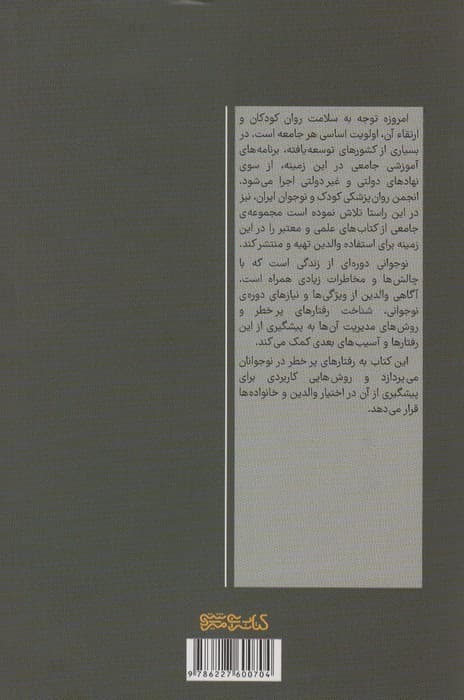 امروزه توجه به سلامت روان کودکان و
ارتقاء آن، اولویت اساسی هر جامعه است. در
بسیاری از کشورهای توسعه‌یافته، برنامه‌های
آموزشی جامعی در این زمینه، از سوی
نهادهای دولتی و غیردولتی اجرا می‌شود.
انجمن روان‌پزشکی کودک و نوجوان ایران، نیز
در این راستا تلاش نموده است مجموعه‌ی
جامعی از کتاب‌های علمی و معتبر را در این
زمینه برای استفاده والدین تهیه و منتشر کند.
نوجوانی دوره‌ای از زندگی است که با
چالش‌ها و مخاطرات زیادی همراه است.
آگاهی والدین از ویژگی‌ها و نیازهای دوره‌ی
نوجوانی، شناخت رفتارهای پر خطر و
روش‌های مدیریت آن‌ها به پیشگیری از این
رفتارها و آسیب‌های بعدی کمک می‌کند.
این کتاب به رفتارهای پر خطر در نوجوانان
می‌پردازد و روش‌هایی کاربردی برای
پیشگیری از آن در اختیار والدین و خانواده‌ها
قرار می‌دهد.
9 786227 600704